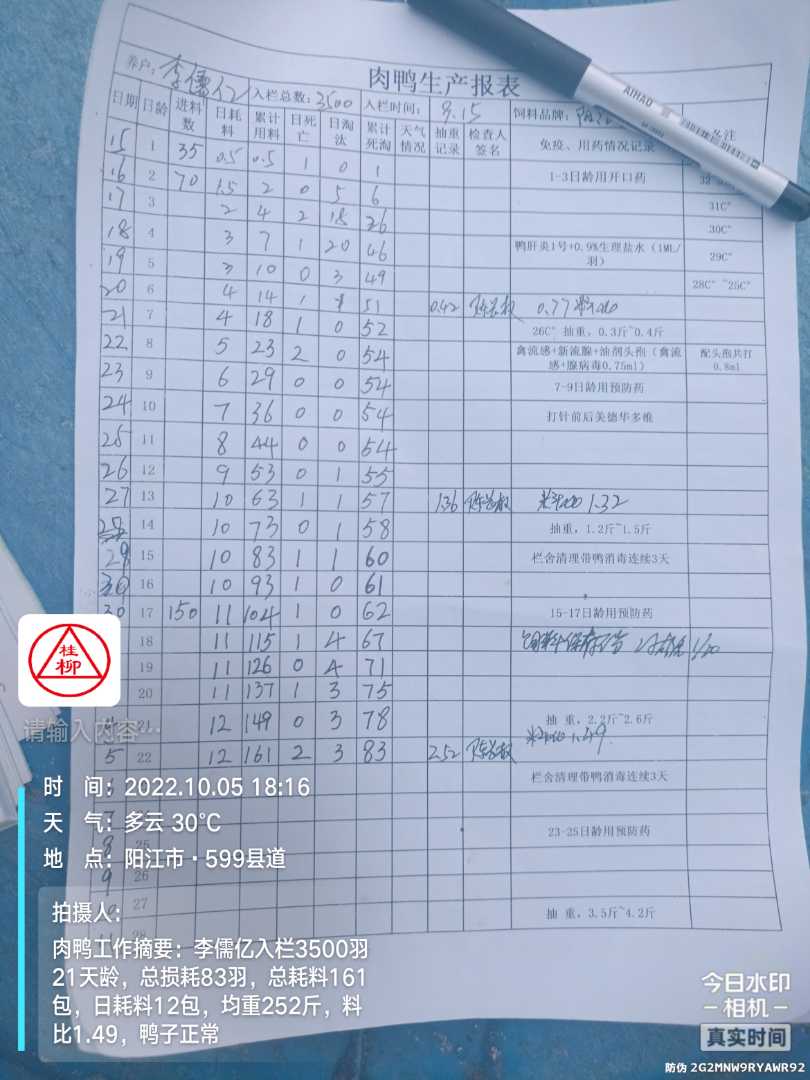 肉鸭生产报表
养户：李儒亿 入栏总数：3500 入栏时间：9.15 饲料品牌：
日期 日龄 进料数 日耗料 累计用料 日死亡 日淘汰 累计死淘 天气情况 抽重记录 检查人签名 免疫、用药情况记录 备注
15 1 35 0.5 0.5 1 0 1
16 2 70 1.5 2 0 5 6 1-3日龄用开口药
17 3 2 4 2 18 26 31C°
18 4 3 7 1 20 46 30C°
鸭肝炎1号+0.9%生理盐水（1ML/羽） 29C°
19 5 3 10 0 3 49
20 6 4 14 1 1 51 0.42 0.77 28C° ~25C°
21 7 4 18 1 0 52 26C° 抽重，0.3斤~0.4斤
22 8 5 23 2 0 54 禽流感+新流腺+油剂头孢（禽流感+腺病毒0.75ml） 配头孢共打0.8ml
23 9 6 29 0 0 54 7-9日龄用预防药
24 10 7 36 0 0 54 打针前后美德华多维
25 11 8 44 0 0 54
26 12 9 53 0 1 55
27 13 10 63 1 1 57 1.36 1.32
28 14 10 73 0 1 58 抽重，1.2斤~1.5斤
29 15 10 83 1 1 60 栏舍清理带鸭消毒连续3天
30 16 10 93 1 0 61
30 17 150 11 104 1 0 62 15-17日龄用预防药
18 11 115 1 4 67
19 11 126 0 4 71
20 11 137 1 3 75
21 12 149 0 3 78 抽 重，2.2斤~2.6斤
5 22 12 161 2 3 83 2.52 1.49
栏舍清理带鸭消毒连续3天
23-25日龄用预防药
8 25
9
27
抽 重，3.5斤~4.2斤
28
AIHAO
桂柳
请输入内容…
时 间：2022.10.05 18:16
天 气：多云 30℃
地 点：阳江市·599县道
拍摄人：
肉鸭工作摘要：李儒亿入栏3500羽
21天龄，总损耗83羽，总耗料161
包，日耗料12包，均重252斤，料
比1.49，鸭子正常
今日水印
相机
真实时间
防伪 2G2MNW9RYAWR92